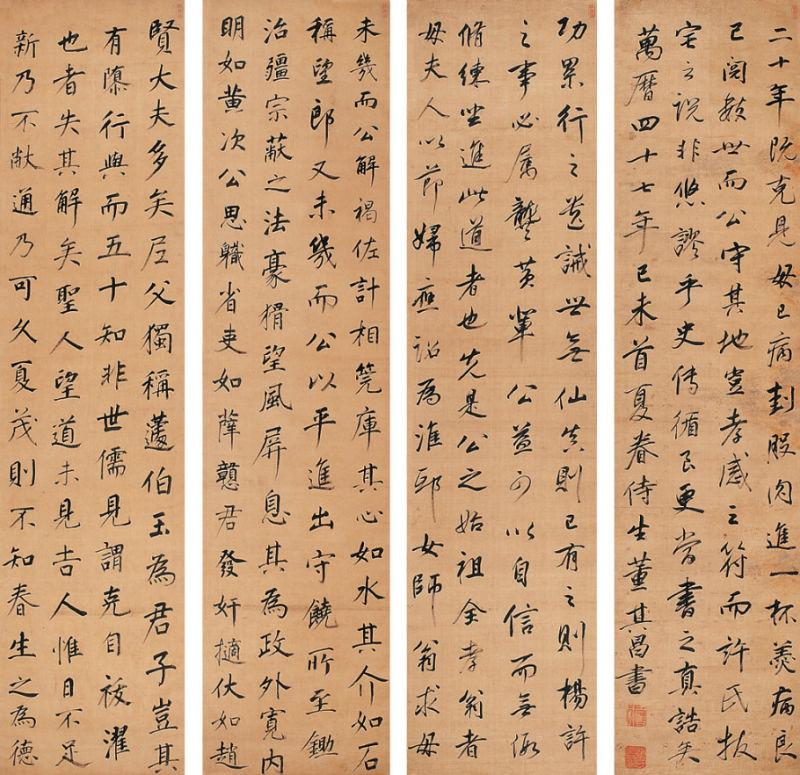 賢大夫多矣尼父獨稱蘧伯玉為君子豈其
有隳行與而五十知非世儒見謂克自祓濯
也者失其解矣聖人望道未見吉人惟日不足
新乃不敝通乃可久夏茂則不知春生之為德
未幾而公解褐佐計相筦庫其心如水其介如石
稱望郎又未幾而公以平進出守饒所至鋤
治疆宗蔽之法豪猾望風屏息其為政外寬內
明如黃次公思職省吏如薛贛君發奸擿伏如趙
功累行之益誡世無仙真則已有之則楊許
之事必屬龔黃輩公益可以自信而無復
脩練坐進此道者也先是公之始祖全孝翁者
母夫人以節婦應詔為淮邸女師翁求母
二十年既克見母已病刲股肉進一杯羹病良
已閱數世而公守其地豈孝感之符而許氏拔
宅之說非悠謬乎史傳循良更當書之真誥矣
萬曆四十七年己未首夏眷侍生董其昌書